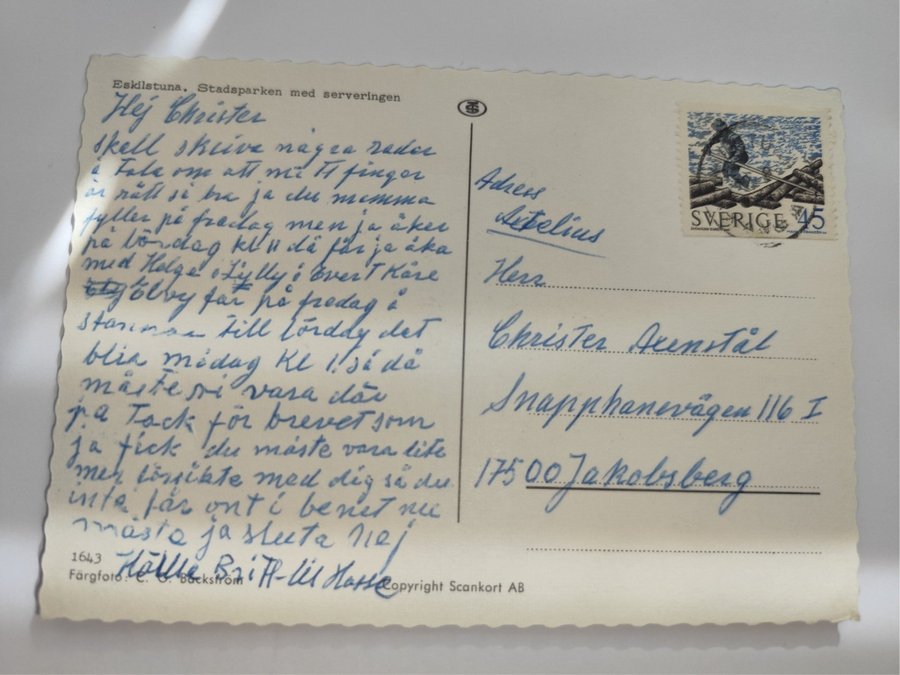 Eskilstuna. Stadsparken med serveringen
Hej Christer
skall skriva några rader
å tala om att mitt finger
är rätt så bra ja du mamma
fyller på fredag men ja åker
på lördag kl 11 då får ja åka
med Helge o Lylly o Evert Kåre
Elvy får på fredag å
stannar till lördag det
blir midag Kl 1. så då
måste vi vara där
ja Tack för brevet som
ja fick du måste vara lite
mer försikte med dig så du
inte får ont i benet nu
måste ja sluta Hej
Britt-
1643
Färgfoto: C. G. Bäckström
Copyright Scankort AB
SVERIGE 45
Adress
Herr
Christer Axenstål
Snapphanevägen 116 I
175 00 Jakobsberg